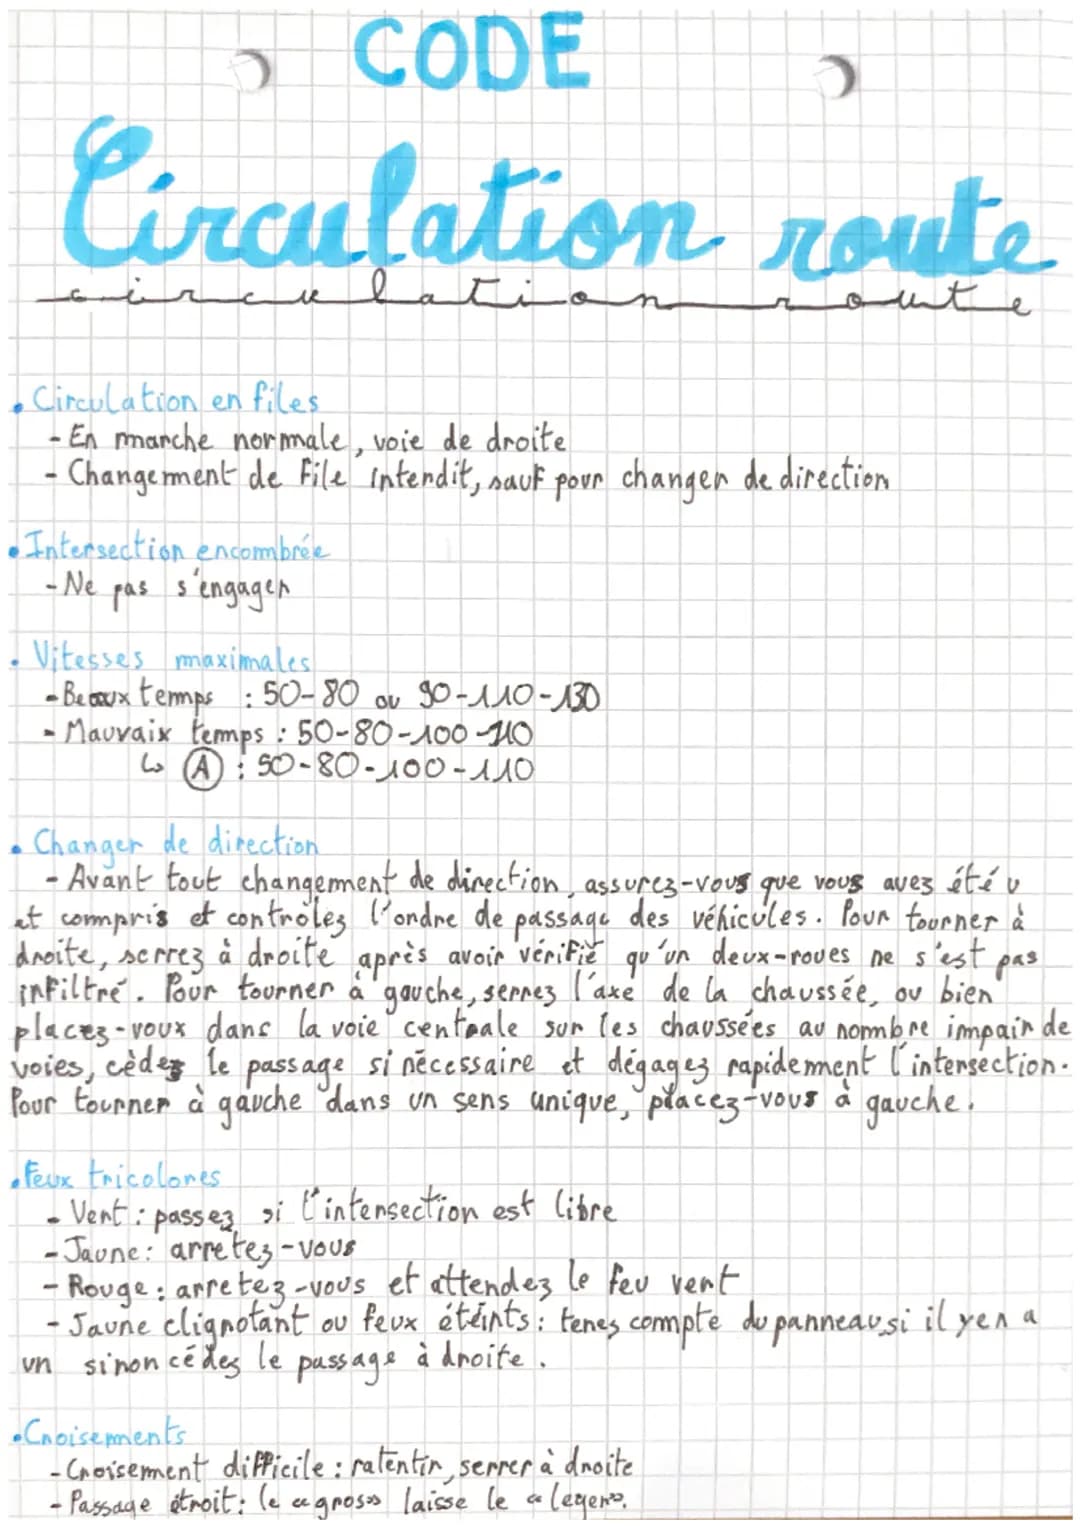 CODE
Circulation route
circulation route
• Circulation en files
- En marche normale, voie de droite
- Changement de File interdit, sauf pour changer de direction
• Intersection encombrée
- Ne pas s'engager
• Vitesses maximales
- Beaux temps : 50-80 ou 90-110-130
- Mauvaix temps : 50-80-100-110
↳ Ⓐ : 50-80-100-110
• Changer de direction
- Avant tout changement de direction, assurez-vous que vous avez été v
et compris et controlez l'ordre de passage des véhicules. Pour tourner à
droite, serrez à droite après avoir vérifié qu'un deux-roues ne s'est pas
infiltré. Pour tourner à gauche, serrez l'axe de la chaussée, ou bien
placez-voux dans la voie centrale sur les chaussées au nombre impair de
voies, cèdez le passage si nécessaire et dégagez rapidement l'intersection.
Pour tourner à gauche dans un sens unique, placez-vous à gauche.
• Feux tricolores
- Vert : passez si l'intersection est libre
- Jaune : arretez-vous
- Rouge : arretez-vous et attendez le feu vert
- Jaune clignotant ou feux éteints : tenez compte du panneau, si il y en a
un sinon cédez le passage à droite.
• Croisements
- Croisement difficile : ralentir, serrer à droite
- Passage étroit : le «gros» laisse le «leger».